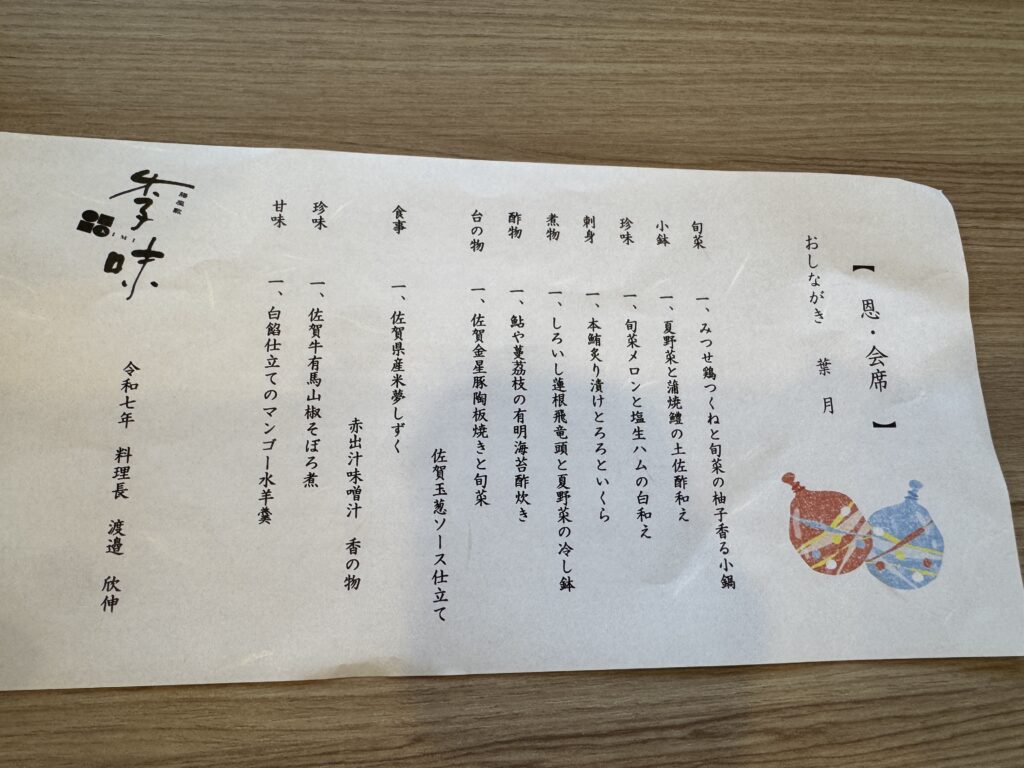 【 恩・会席 】
おしながき 葉月
旬菜 一、みつせ鶏つくねと旬菜の柚子香る小鍋
小鉢 一、夏野菜と蒲焼鱧の土佐酢和え
珍味 一、旬菜メロンと塩生ハムの白和え
刺身 一、本鮪炙り漬けとろろといくら
煮物 一、しろいし蓮根飛竜頭と夏野菜の冷し鉢
酢物 一、鮎や蔓茘枝の有明海苔酢炊き
台の物 一、佐賀金星豚陶板焼きと旬菜
佐賀玉葱ソース仕立て
食事 一、佐賀県産米夢しずく
赤出汁味噌汁 香の物
珍味 一、佐賀牛有馬山椒そぼろ煮
甘味 一、白餡仕立てのマンゴー水羊羹
令和七年 料理長 渡邉 欣伸
季味